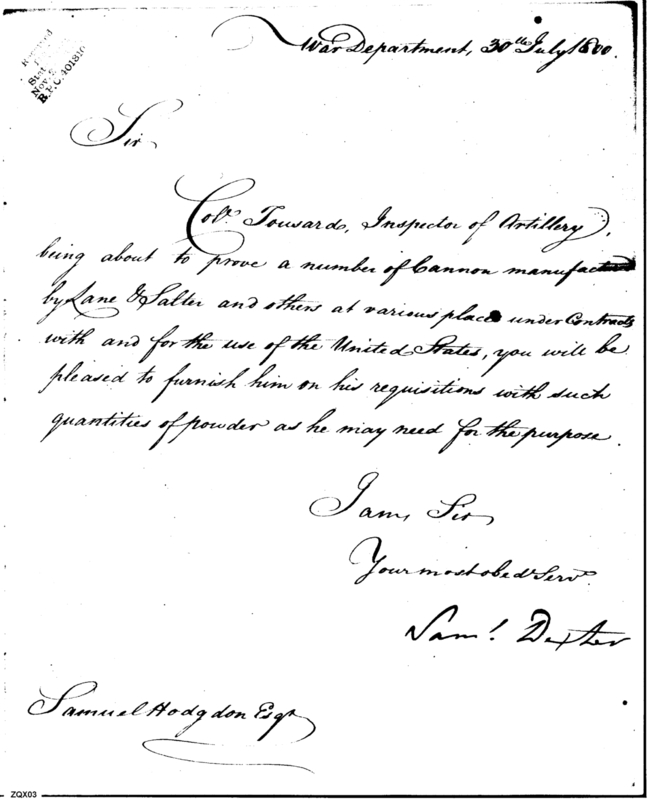 War Department, 30th July 1800.
Nov. 2
B.P.C. 401810
Sir
Colo. Tousard, Inspector of Artillery,
being about to prove a number of Cannon manufactured
by Lane & Salter and others at various places under Contracts
with and for the use of the United States, you will be
pleased to furnish him on his requisitions with such
quantities of powder as he may need for the purpose.
I am, Sir
Your most obedt Servt
Saml. Dexter
Samuel Hodgdon Esqr
ZQX03